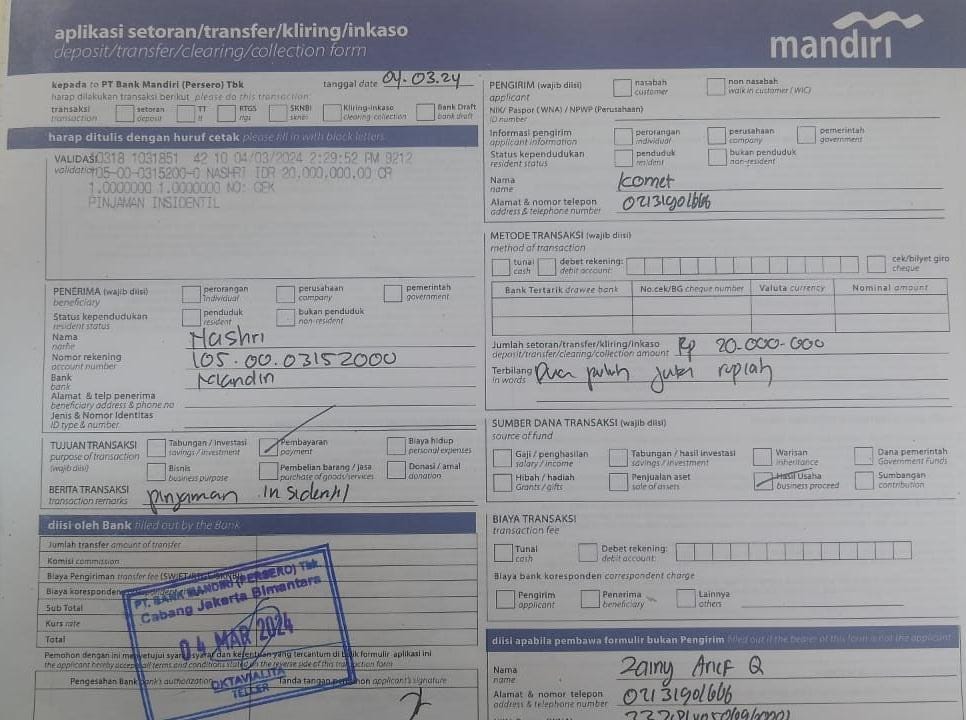 aplikasi setoran/transfer/kliring/inkaso
deposit/transfer/clearing/collection form
mandiri
kepada to PT Bank Mandiri (Persero) Tbk
tanggal date 04.03.24
harap dilakukan transaksi berikut please do this transaction:
transaksi transaction
setoran deposit
TT tt
RTGS rtgs
SKNBI sknbi
Kliring-inkaso clearing-collection
Bank Draft bank draft
harap ditulis dengan huruf cetak please fill in with block letters
VALIDASI validation
0318 1031851 42 10 04/03/2024 2:29:52 PM 9212
105-00-0315200-0 NASHRI IDR 20,000,000.00 CR
1.0000000 1.0000000 NO: CEK
PINJAMAN INSIDENTIL
PENERIMA (wajib diisi) beneficiary
perorangan individual
perusahaan company
pemerintah government
Status kependudukan resident status
penduduk resident
bukan penduduk non-resident
Nama name Nashri
Nomor rekening account number 105.00.03152000
Bank bank Mandiri
Alamat & telp penerima beneficiary address & phone no
Jenis & Nomor Identitas ID type & number
TUJUAN TRANSAKSI purpose of transaction (wajib diisi)
Tabungan / Investasi savings / investment
Pembayaran payment
Biaya hidup personal expenses
Bisnis business purpose
Pembelian barang / jasa purchase of goods/services
Donasi / amal donation
BERITA TRANSAKSI transaction remarks pinjaman Insidentil
diisi oleh Bank filled out by the Bank
Jumlah transfer amount of transfer
Komisi commission
Biaya Pengiriman transfer fee
Biaya koresponden
Sub Total
Kurs rate
Total
PT. BANK MANDIRI (PERSERO) Tbk
Cabang Jakarta Bimantara
04 MAR 2024
OKTAVIALITA
TELLER
Pemohon dengan ini menyetujui syarat-syarat dan ketentuan yang tercantum di balik formulir aplikasi ini
the applicant hereby accept all terms and conditions stated on the reverse side of this transaction form
Pengesahan Bank bank's authorization
Tanda tangan pemohon applicant's signature
PENGIRIM (wajib diisi) applicant
nasabah customer
non nasabah walk in customer (WIC)
NIK/ Paspor (WNA) / NPWP (Perusahaan)
ID number
Informasi pengirim applicant information
perorangan individual
perusahaan company
pemerintah government
Status kependudukan resident status
penduduk resident
bukan penduduk non-resident
Nama name Komet
Alamat & nomor telepon address & telephone number 02131901666
METODE TRANSAKSI (wajib diisi)
method of transaction
tunai cash
debet rekening: debit account:
cek/bilyet giro cheque
Bank Tertarik drawee bank
No.cek/BG cheque number
Valuta currency
Nominal amount
Jumlah setoran/transfer/kliring/inkaso
deposit/transfer/clearing/collection amount Rp 20.000.000
Terbilang in words Dua puluh juta rupiah
SUMBER DANA TRANSAKSI (wajib diisi)
source of fund
Gaji / penghasilan salary / income
Tabungan / hasil investasi savings / investment
Warisan inheritance
Dana pemerintah Government Funds
Hibah / hadiah Grants / gifts
Penjualan aset sale of assets
Hasil Usaha business proceed
Sumbangan contribution
BIAYA TRANSAKSI
transaction fee
Tunai cash
Debet rekening: debit account:
Biaya bank koresponden correspondent charge
Pengirim applicant
Penerima beneficiary
Lainnya others
diisi apabila pembawa formulir bukan Pengirim filled out if the bearer of this form is not the applicant
Nama name Zainy Arief Q
Alamat & nomor telepon address & telephone number 02131901666